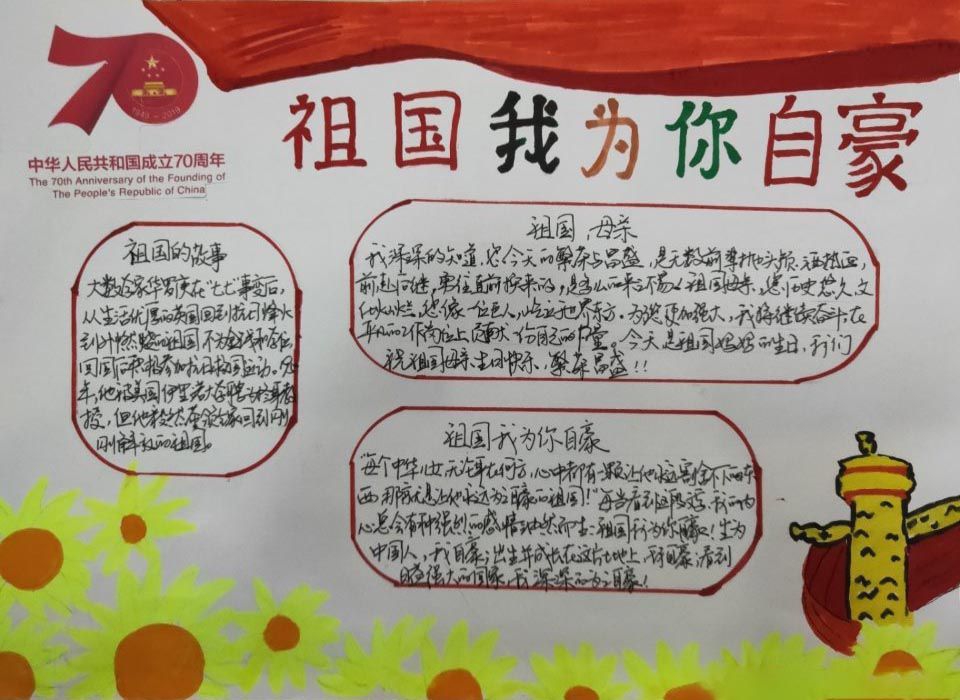 70
1949-2019
中华人民共和国成立70周年
The 70th Anniversary of the Founding of
The People's Republic of China
祖国我为你自豪
祖国的故事
大数学家华罗庚在"七七"事变后,
从生活优厚的英国回到抗日烽火
到处燃烧的祖国
回国后积极参加抗日救国运动。
年,他被美国伊里诺大学聘为终身教
授,但他回到刚
刚解放的祖国。
祖国,母亲
我深深的知道,您今天的繁荣与昌盛,是无数前辈抛头颅、洒热血,
前赴后继,勇往直前换来的,是多么的来之不易。祖国母亲,您历史悠久,文
化灿烂,您像一位巨人,屹立于世界东方。为您更加强大,我将继续奋斗在
平凡的工作岗位上,贡献一份自己的力量。今天是祖国妈妈的生日,我们
祝祖国母亲生日快乐,繁荣昌盛!!
祖国我为你自豪
"每个中华儿女无论在何方,心中都有一颗让他永远割舍不下的东
西,那就是让他永远为之自豪的祖国!"每当看到这段话,我的内
心总会有种强烈的感情油然而生:祖国我为你自豪!生为
中国人,我自豪;出生并成长在这片土地上,我自豪;看到
日益强大的国家,我深深的为之自豪!